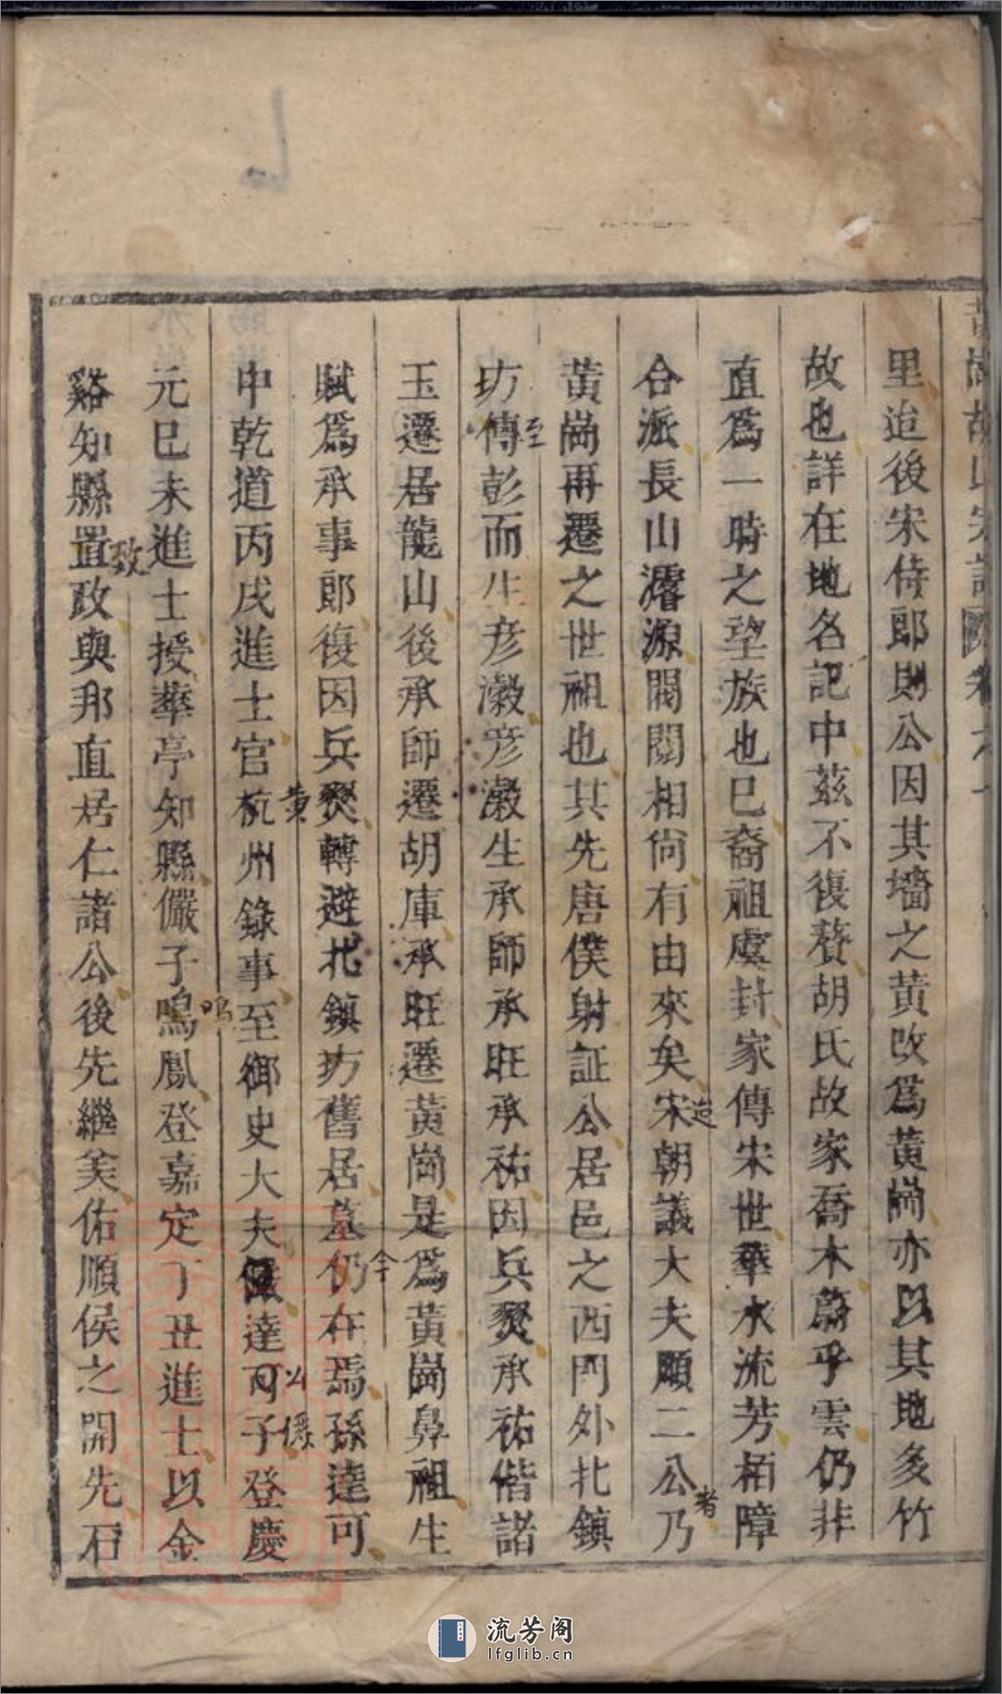 黃崗胡氏宗譜 卷六
里迨後宋侍郎則公因其墻之黃改爲黃崗亦以其地多竹
故也詳在地名記中茲不復贅胡氏故家喬木蔚乎雲仍非
直爲一時之望族也巳裔祖虞封家傳宋世華水流芳栢障
合派長山濬源閥閱相尙有由來矣宋朝議大夫順二公乃
迨
者
黃崗再遷之世祖也其先唐僕射証公居邑之西門外北鎮
坊傳彭而生彦瀫彦瀫生承師承旺承祐因兵燹承祐偕諸
至
玉遷居龍山後承師遷胡庫承旺遷黃崗是爲黃崗鼻祖生
賦爲承事郎復因兵燹轉避北鎮坊舊居墓仍在焉孫達可
今
申乾道丙戌進士官杭州錄事至御史大夫儼達可子登慶
黄
公
儼
元巳未進士授華亭知縣儼子鳴鳳登嘉定丁丑進士以金
鳴
谿知縣置政與邦直居仁諸公後先繼美佑順侯之開先石
致
流芳阁
lfglib.cn